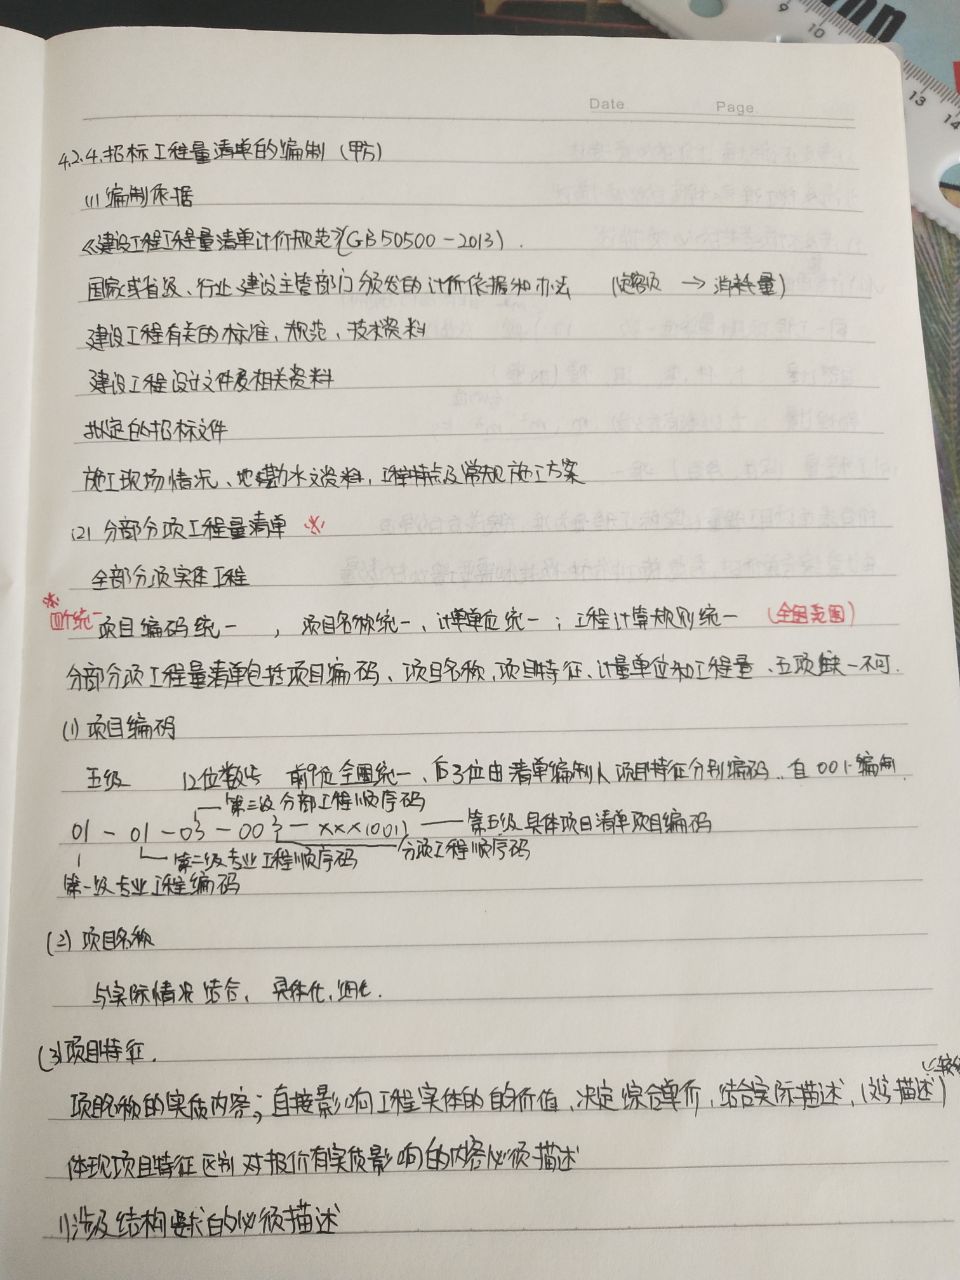 9 10
13
14
Date Page
4.2.4.招标工程量清单的编制（甲方）
(1) 编制依据
《建设工程工程量清单计价规范》(GB50500-2013).
国家或省级、行业建设主管部门颁发的计价依据和办法 (定额 → 消耗量)
建设工程有关的标准、规范、技术资料
建设工程设计文件及相关资料
拟定的招标文件
施工现场情况、地勘水文资料，工程特点及常规施工方案
(2) 分部分项工程量清单 ※
全部分项实体工程
※
四个统一 项目编码统一，项目名称统一、计单单位统一；工程计算规则统一 (全国范围)
分部分项工程量清单包括项目编码、项目名称、项目特征、计量单位和工程量、五项缺一不可.
(1) 项目编码
五级 12位数字 前9位全国统一、后3位由清单编制人项目特征分别编码. 自001编制.
第三级分部工程顺序码
01 - 01 - 03 - 003 - xxx(001) 第五级具体项目清单项目编码
第二级专业工程顺序码 分项工程顺序码
第一级专业工程编码
(2) 项目名称
与实际情况结合, 具体化, 细化.
(3) 项目特征.
项目名称的实质内容；直接影响工程实体的自的价值、决定综合单价, 结合实际描述, 描述)
体现项目特征区别 对报价有实质影响的内容必须描述
1)涉及结构要求的必须描述